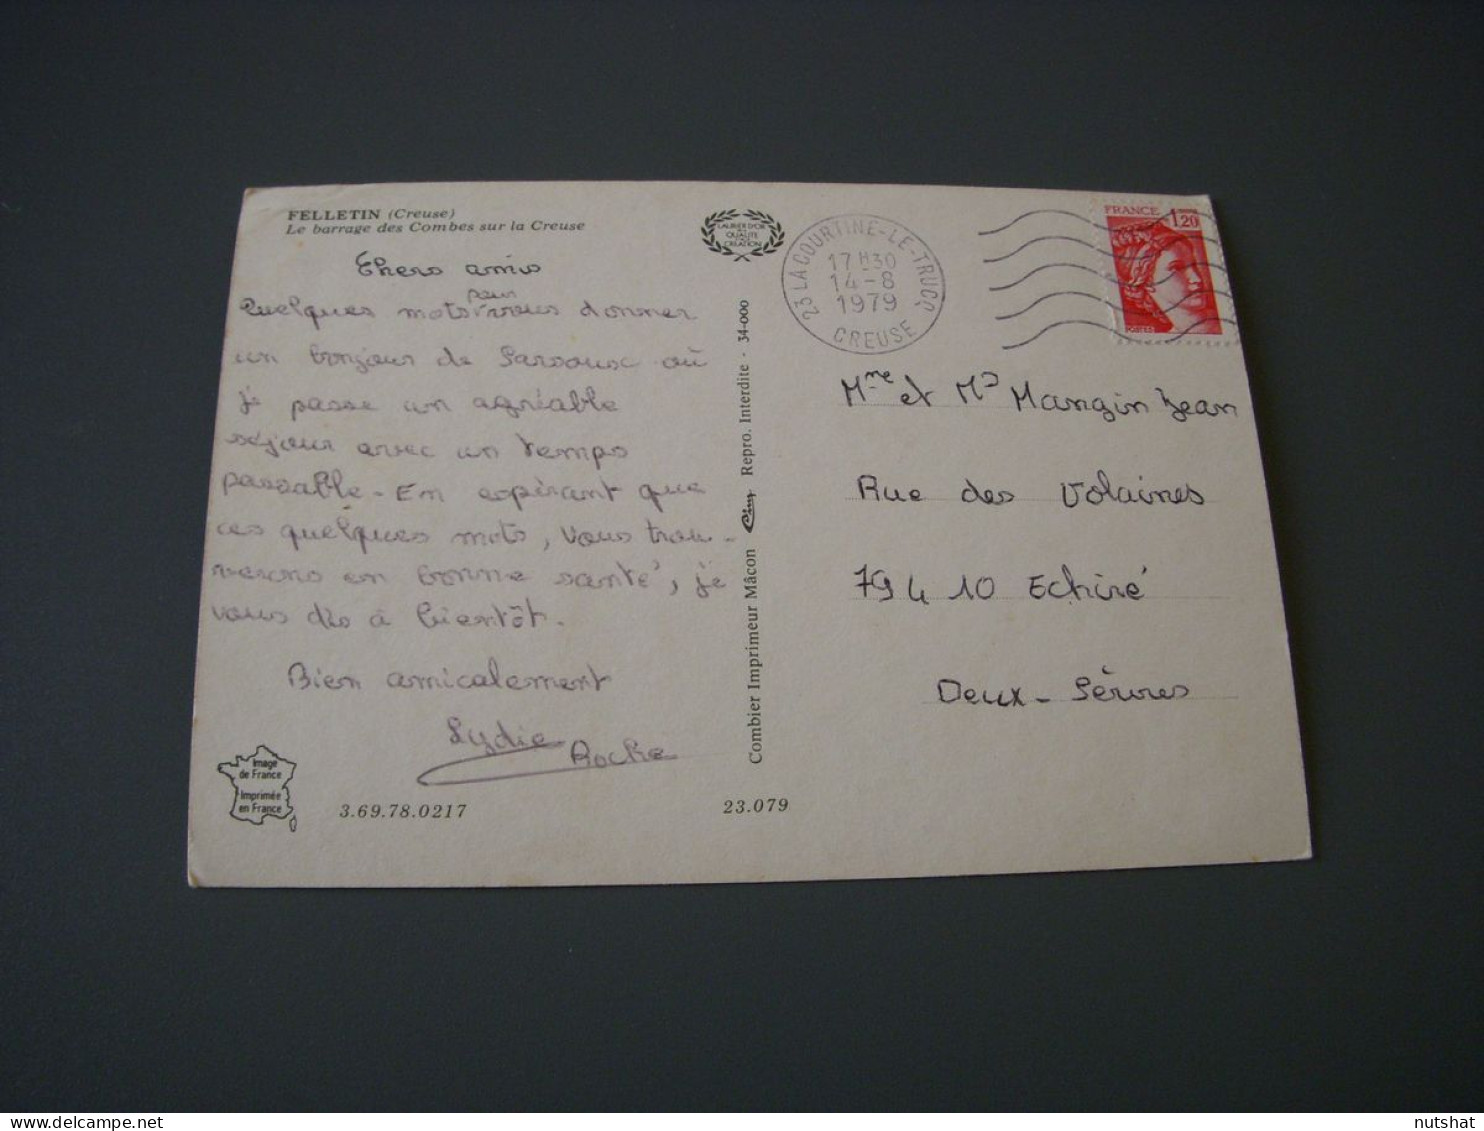 FELLETIN (Creuse)
Le barrage des Combes sur la Creuse
Chers amis
pour
Quelques mots vous donner
un bonjour de où
je passe un agréable
séjour avec un temps
passable. En espérant que
ces quelques mots, vous trou-
verons en bonne santé, je
vous dis à bientôt.
Bien amicalement
Lydie
Roche
Image
de France
Imprimée
en France
3.69.78.0217
23.079
LAURIER D'OR
DE LA
QUALITE
CREATION
Combier Imprimeur Mâcon Cim Repro. Interdite - 34-000
23 LA COURTINE-LE-TRUCQ
17 H 30
14-8
1979
CREUSE
FRANCE 1,20
POSTES
Mme et Mr Mangin Jean
Rue des Volaines
79410 Echiré
Deux-Sèvres
nutshat